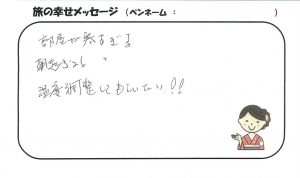 旅の幸せメッセージ (ペンネーム : )
部屋が熱すぎる
温度調整してもらいたい!!